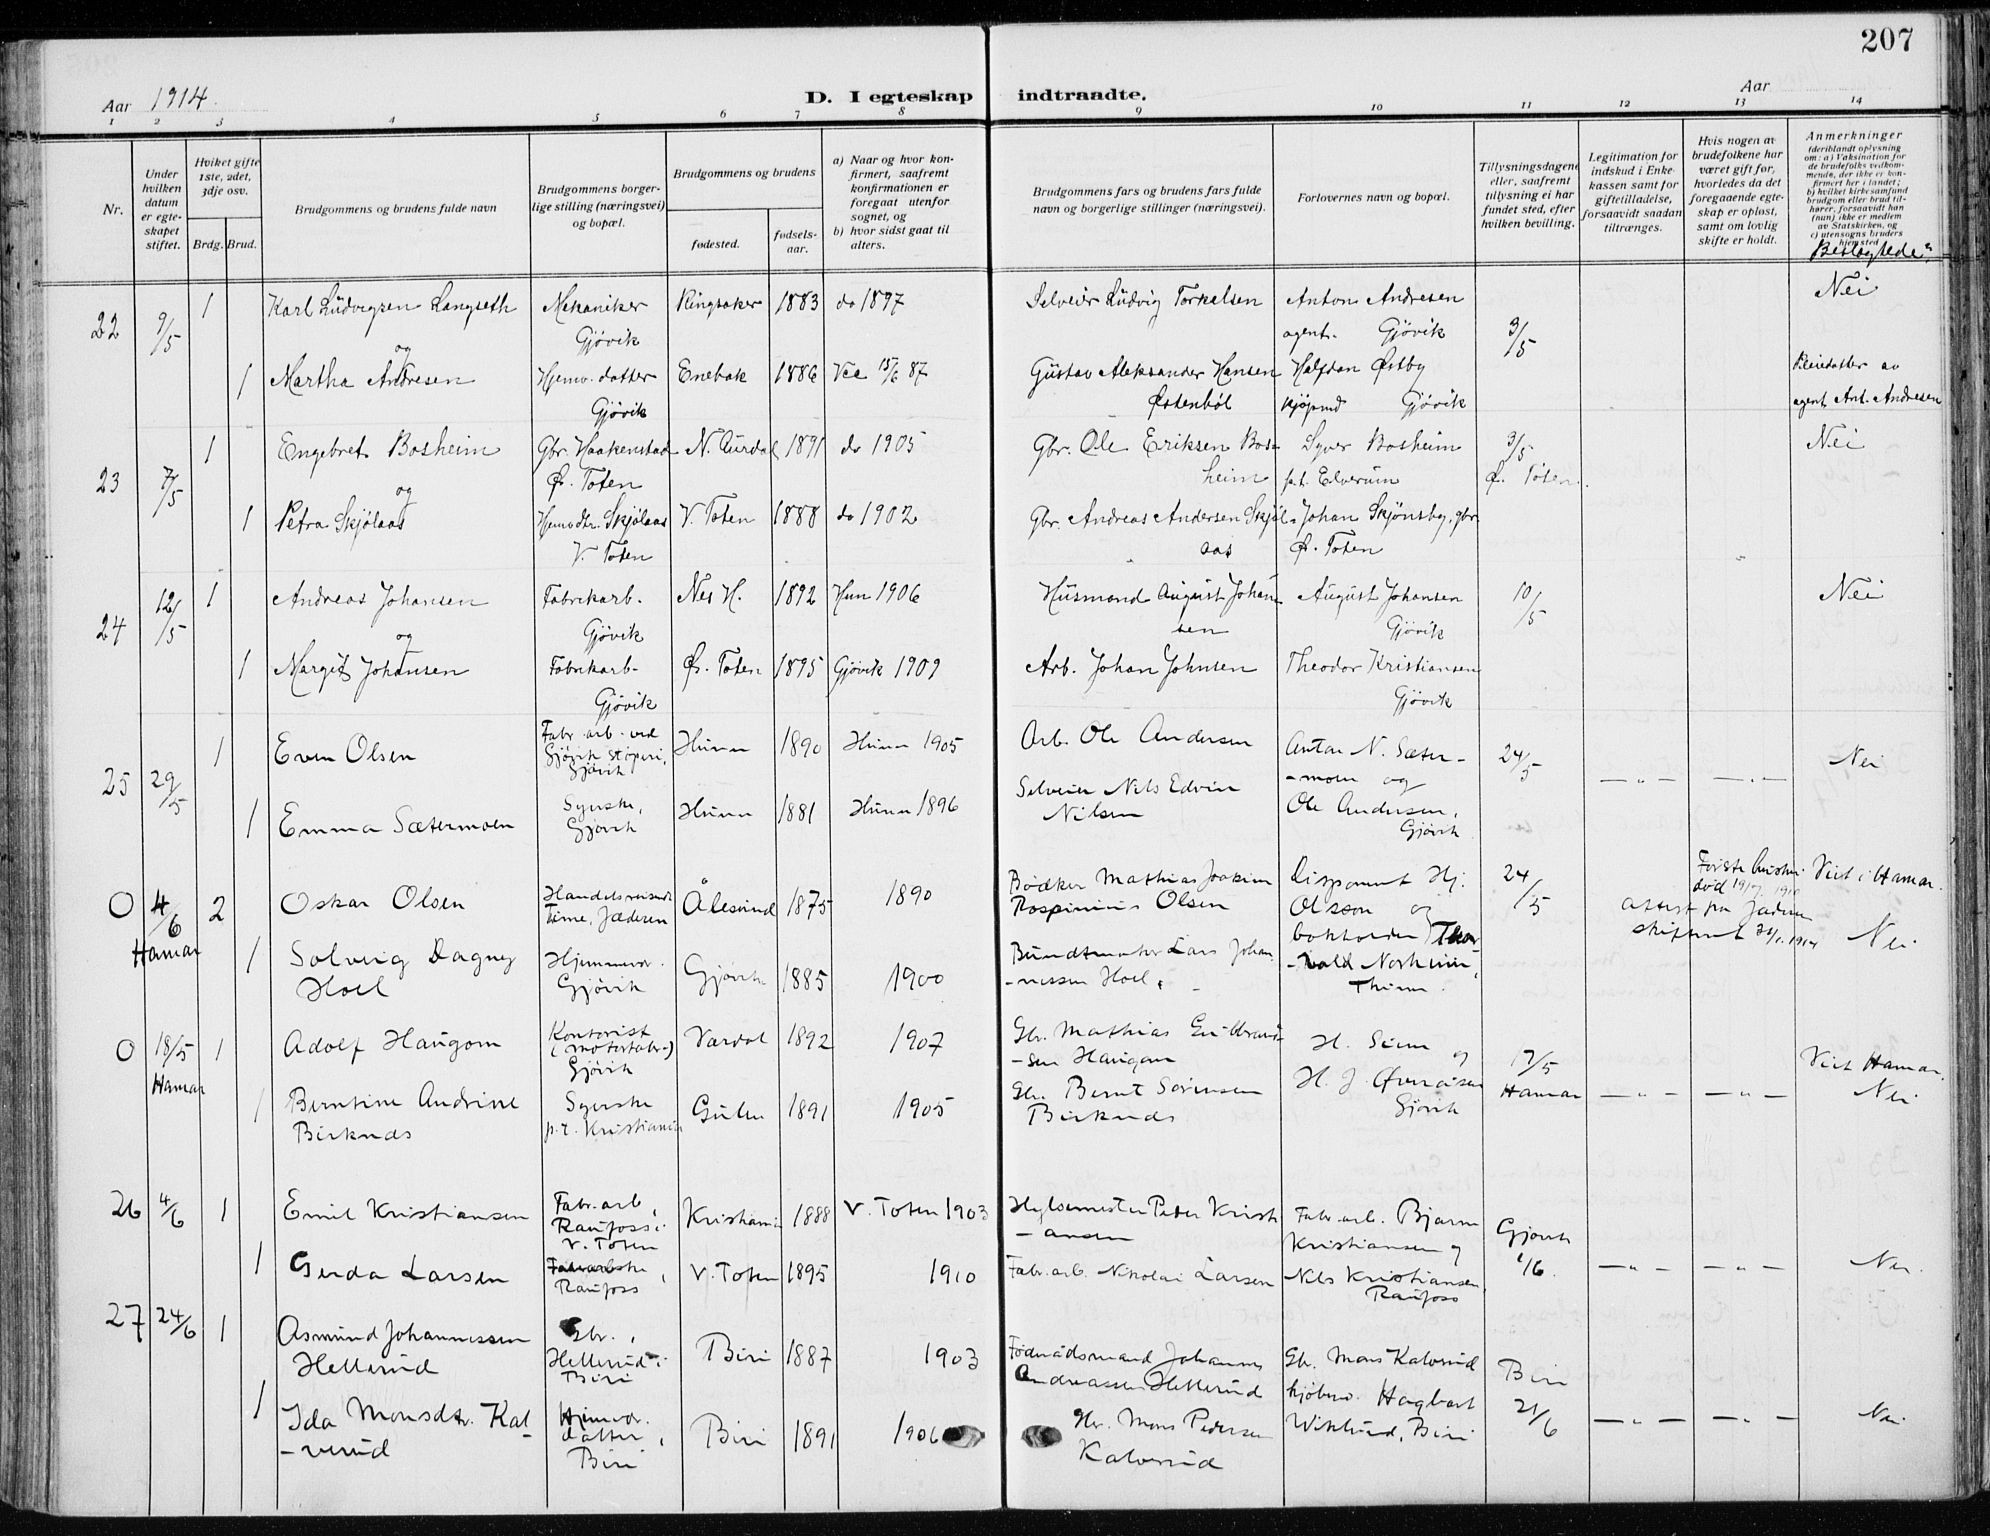 207
Aar 1914.
D. I egteskap indtraadte.
Aar
1 2 3 4 5 6 7 8 9 10 11 12 13 14
Nr.
Under hvilken datum er egteskapet stiftet.
Hvilket gifte 1ste, 2det, 3dje osv.
Brdg. Brud.
Brudgommens og brudens fulde navn
Brudgommens borgerlige stilling (næringsvei) og bopæl.
Brudgommens og brudens
fødested.
fødselsaar.
a) Naar og hvor konfirmert, saafremt konfirmationen er foregaat utenfor sognet, og
b) hvor sidst gaat til alters.
Brudgommens fars og brudens fars fulde navn og borgerlige stillinger (næringsvei).
Forlovernes navn og bopæl.
Tillysningsdagene eller, saafremt tillysning ei har fundet sted, efter hvilken bevilling.
Legitimation for indskud i Enkekassen samt for giftetilladelse, forsaavidt saadan tiltrænges.
Hvis nogen av brudefolkene har været gift før, hvorledes da det foregaaende egteskap er opløst, samt om lovlig skifte er holdt.
Anmerkninger (deriblandt oplysning om: a) Vaksination for de brudefolks vedkommende, der ikke er konfirmert her i landet; b) hvilket kirkesamfund brudgom eller brud tilhører, forsaavidt han (hun) ikke er medlem av Statskirken, og c) utensogns bruders hjemsted
Beslægtede?
22 9/5 1 Karl Ludvigsen Langseth Mekaniker Gjøvik Ringsaker 1883 do 1897 Selveier Ludvig Torkelsen Anton Andresen agent. Gjøvik 3/5 Nei
og
1 Martha Andresen Hjemv. datter Gjøvik Enebak 1886 15/6 87 Gustav Aleksander Hansen Østenböl Halfdan Østby kjøpmd Gjøvik Pleiedatter av agent Ant. Andresen
23 7/5 1 Engebret Bosheim Gbr. Haakenstad Ø. Toten N. Aurdal 1891 do 1905 Gbr. Ole Eriksen Bosheim Syver Bosheim p.t. Elverum 3/5 Ø. Toten. Nei
og
1 Petra Skjølaas Hjemvdtr. Skjølaas V. Toten V. Toten 1888 do 1902 Gbr. Andreas Andersen Skjølaas Johan Skjönsby, gbr. Ø. Toten
24 12/5 1 Andreas Johansen Fabrikarb. Gjøvik Nes H. 1892 Hun 1906 Husmand August Johansen August Johansen Gjøvik 10/5 Nei
og
1 Margit Johansen Fabrikarb- Gjøvik Ø. Toten 1895 Gjøvik 1909 Arb. Johan Johnsen Theodor Kristiansen Gjøvik
25 29/5 1 Even Olsen Fabr. arb. ved Gjøvik Støperi, Gjøvik Hunn 1890 Hunn 1905 Arb. Ole Andersen Anton N. Sæter-moen og 24/5 — „ — — „ — Nei
1 Emma Sætermoen Syerske, Gjøvik Hunn 1881 Hunn 1896 Selveier Nils Edvin Nilsen Ole Andersen, Gjøvik
O 4/6 Hamar 2 Oskar Olsen Handelsreisende Time, Jæderen Ålesund 1875 1890 Bødker Mathias Joakim Olsen Disponent Hj. Olsson og 24/5 Første død 1910 Attest fra Jæderen Viet i Hamar.
1 Solveig Dagny Hoel Hjemmev. Gjøvik Gjøvik 1885 1900 Bundtmaker Lars Johannessen Hoel. bokholder Thorvald Norheim, Nei
O 18/5 Hamar 1 Adolf Haugom Kontorist (motorfabr.) Gjøvik Vardal 1892 1907 Gbr. Mathias Gulbrandsen Haugom H. Siem og 17/5 Hamar — „ — — „ — Viet Hamar.
1 Berntine Andrine Birknes Syerske p.t. Kristiania Gulen 1891 1905 Gbr. Bernt Sørensen Birknes H. J. Gjøvik Nei
26 4/6 1 Emil Kristiansen Fabr.arb, Raufoss, V. Toten Kristiania 1888 V. Toten 1903 Hylsemester Peter Kristi-ansen Fabr. arb. Bjarne Kristiansen og Gjøvik 1/6. — „ — — „ — Nei.
1 Gerda Larsen Raufoss V. Toten 1895 1910 Fabr. arb. Nikolai Larsen Nils Kristiansen, Raufoss
27 24/6 1 Asmund Johannessen Hellerud Gbr., Hellerud i Biri Biri 1887 1903 Johannes Andreassen Hellerud Gbr. Mons Kalverud Biri 21/6 — „ — — „ — Nei
1 Ida Monsdtr. Kal-verud Hjemv. datter, Biri Biri 1891 1906 Gbr. Mons Pedersen Kalverud kjøbmd. Hagbart Wiklund, Biri